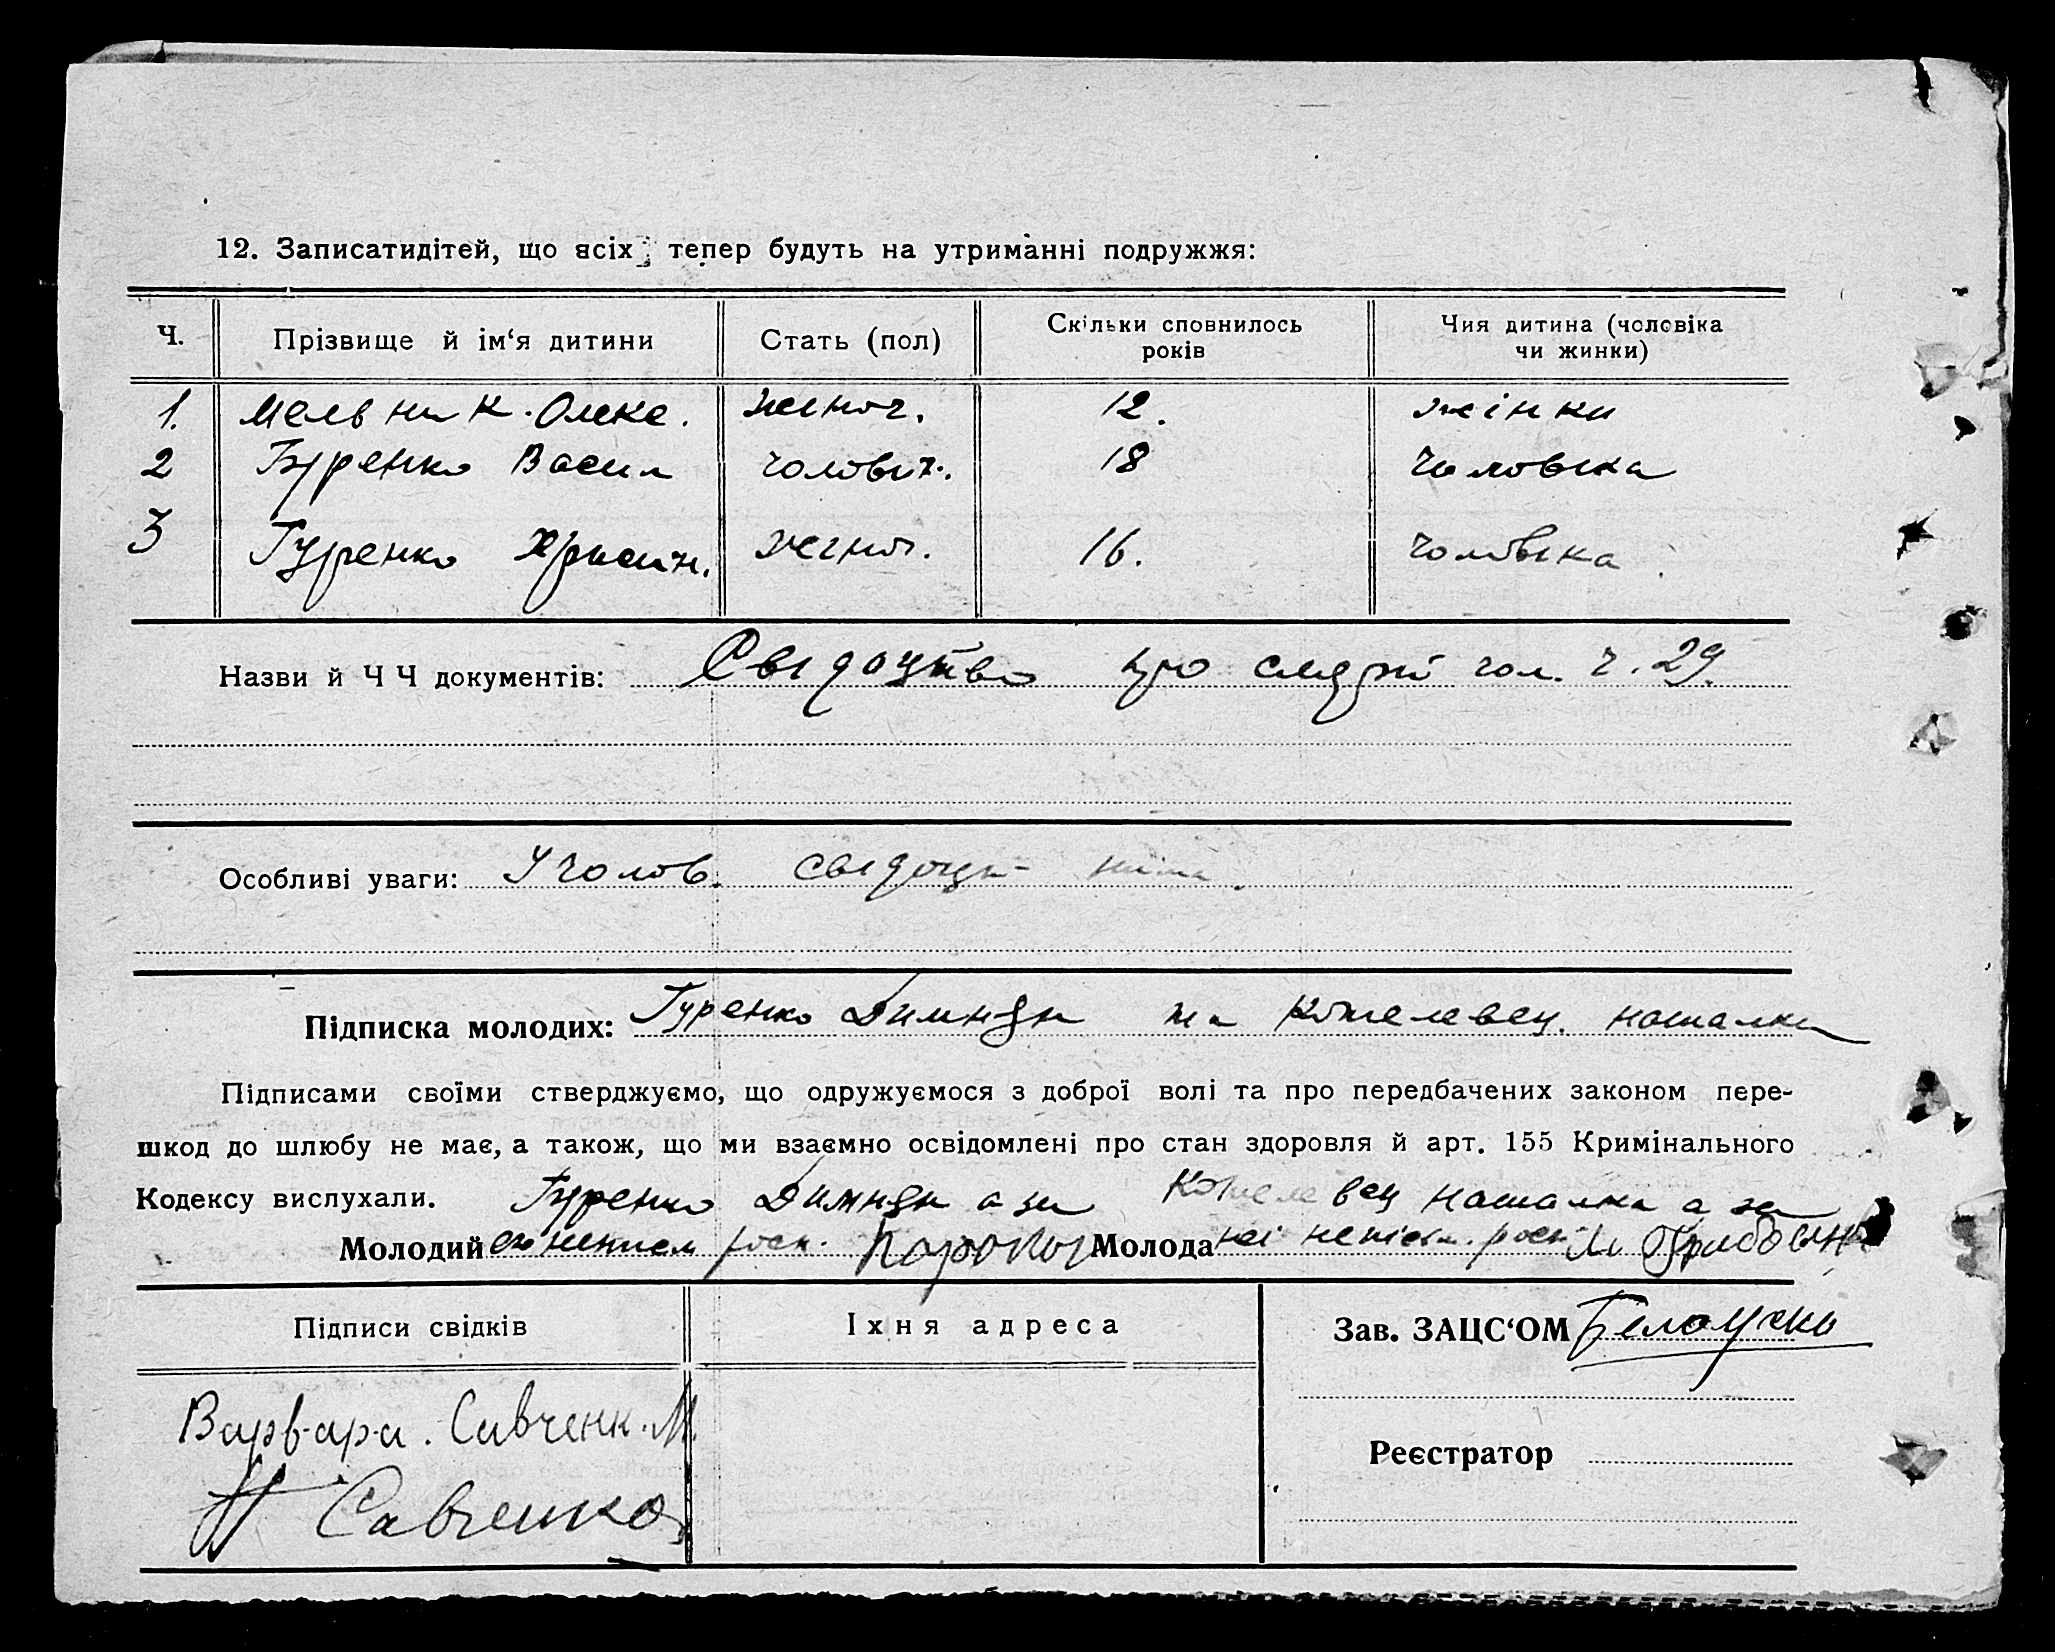 12. Записатидітей, що всіх тепер будуть на утриманні подружжя:
Ч. Прізвище й ім‘я дитини Стать (пол) Скільки сповнилось років Чия дитина (чоловіка чи жинки)
1. Мельник. Олекс. жіноч. 12. жінки
2 Гуренко Васил чоловіч. 18 чоловіка
3 Гуренко Христин. жіноч. 16. чоловіка
Назви й Ч Ч документів: Свідоцтво про смерть чол. ч. 29.
Особливі уваги: У чолов. свідоцт- нима.
Підписка молодих: Гуренко та Котелевец. наталка
Підписами своїми стверджуємо, що одружуємося з доброї волі та про передбачених законом пере-
шкод до шлюбу не має, а також, що ми взаємно освідомлені про стан здоровля й арт. 155 Кримінального
Кодексу вислухали. Гуренко а за Котелевец наталка а за
Молодий роск. Молода неї неписм. роск.
Підписи свідків Іхня адреса Зав. ЗАЦС‘ОМ
Варвара. Савченк. М.
Реєстратор
Савченко